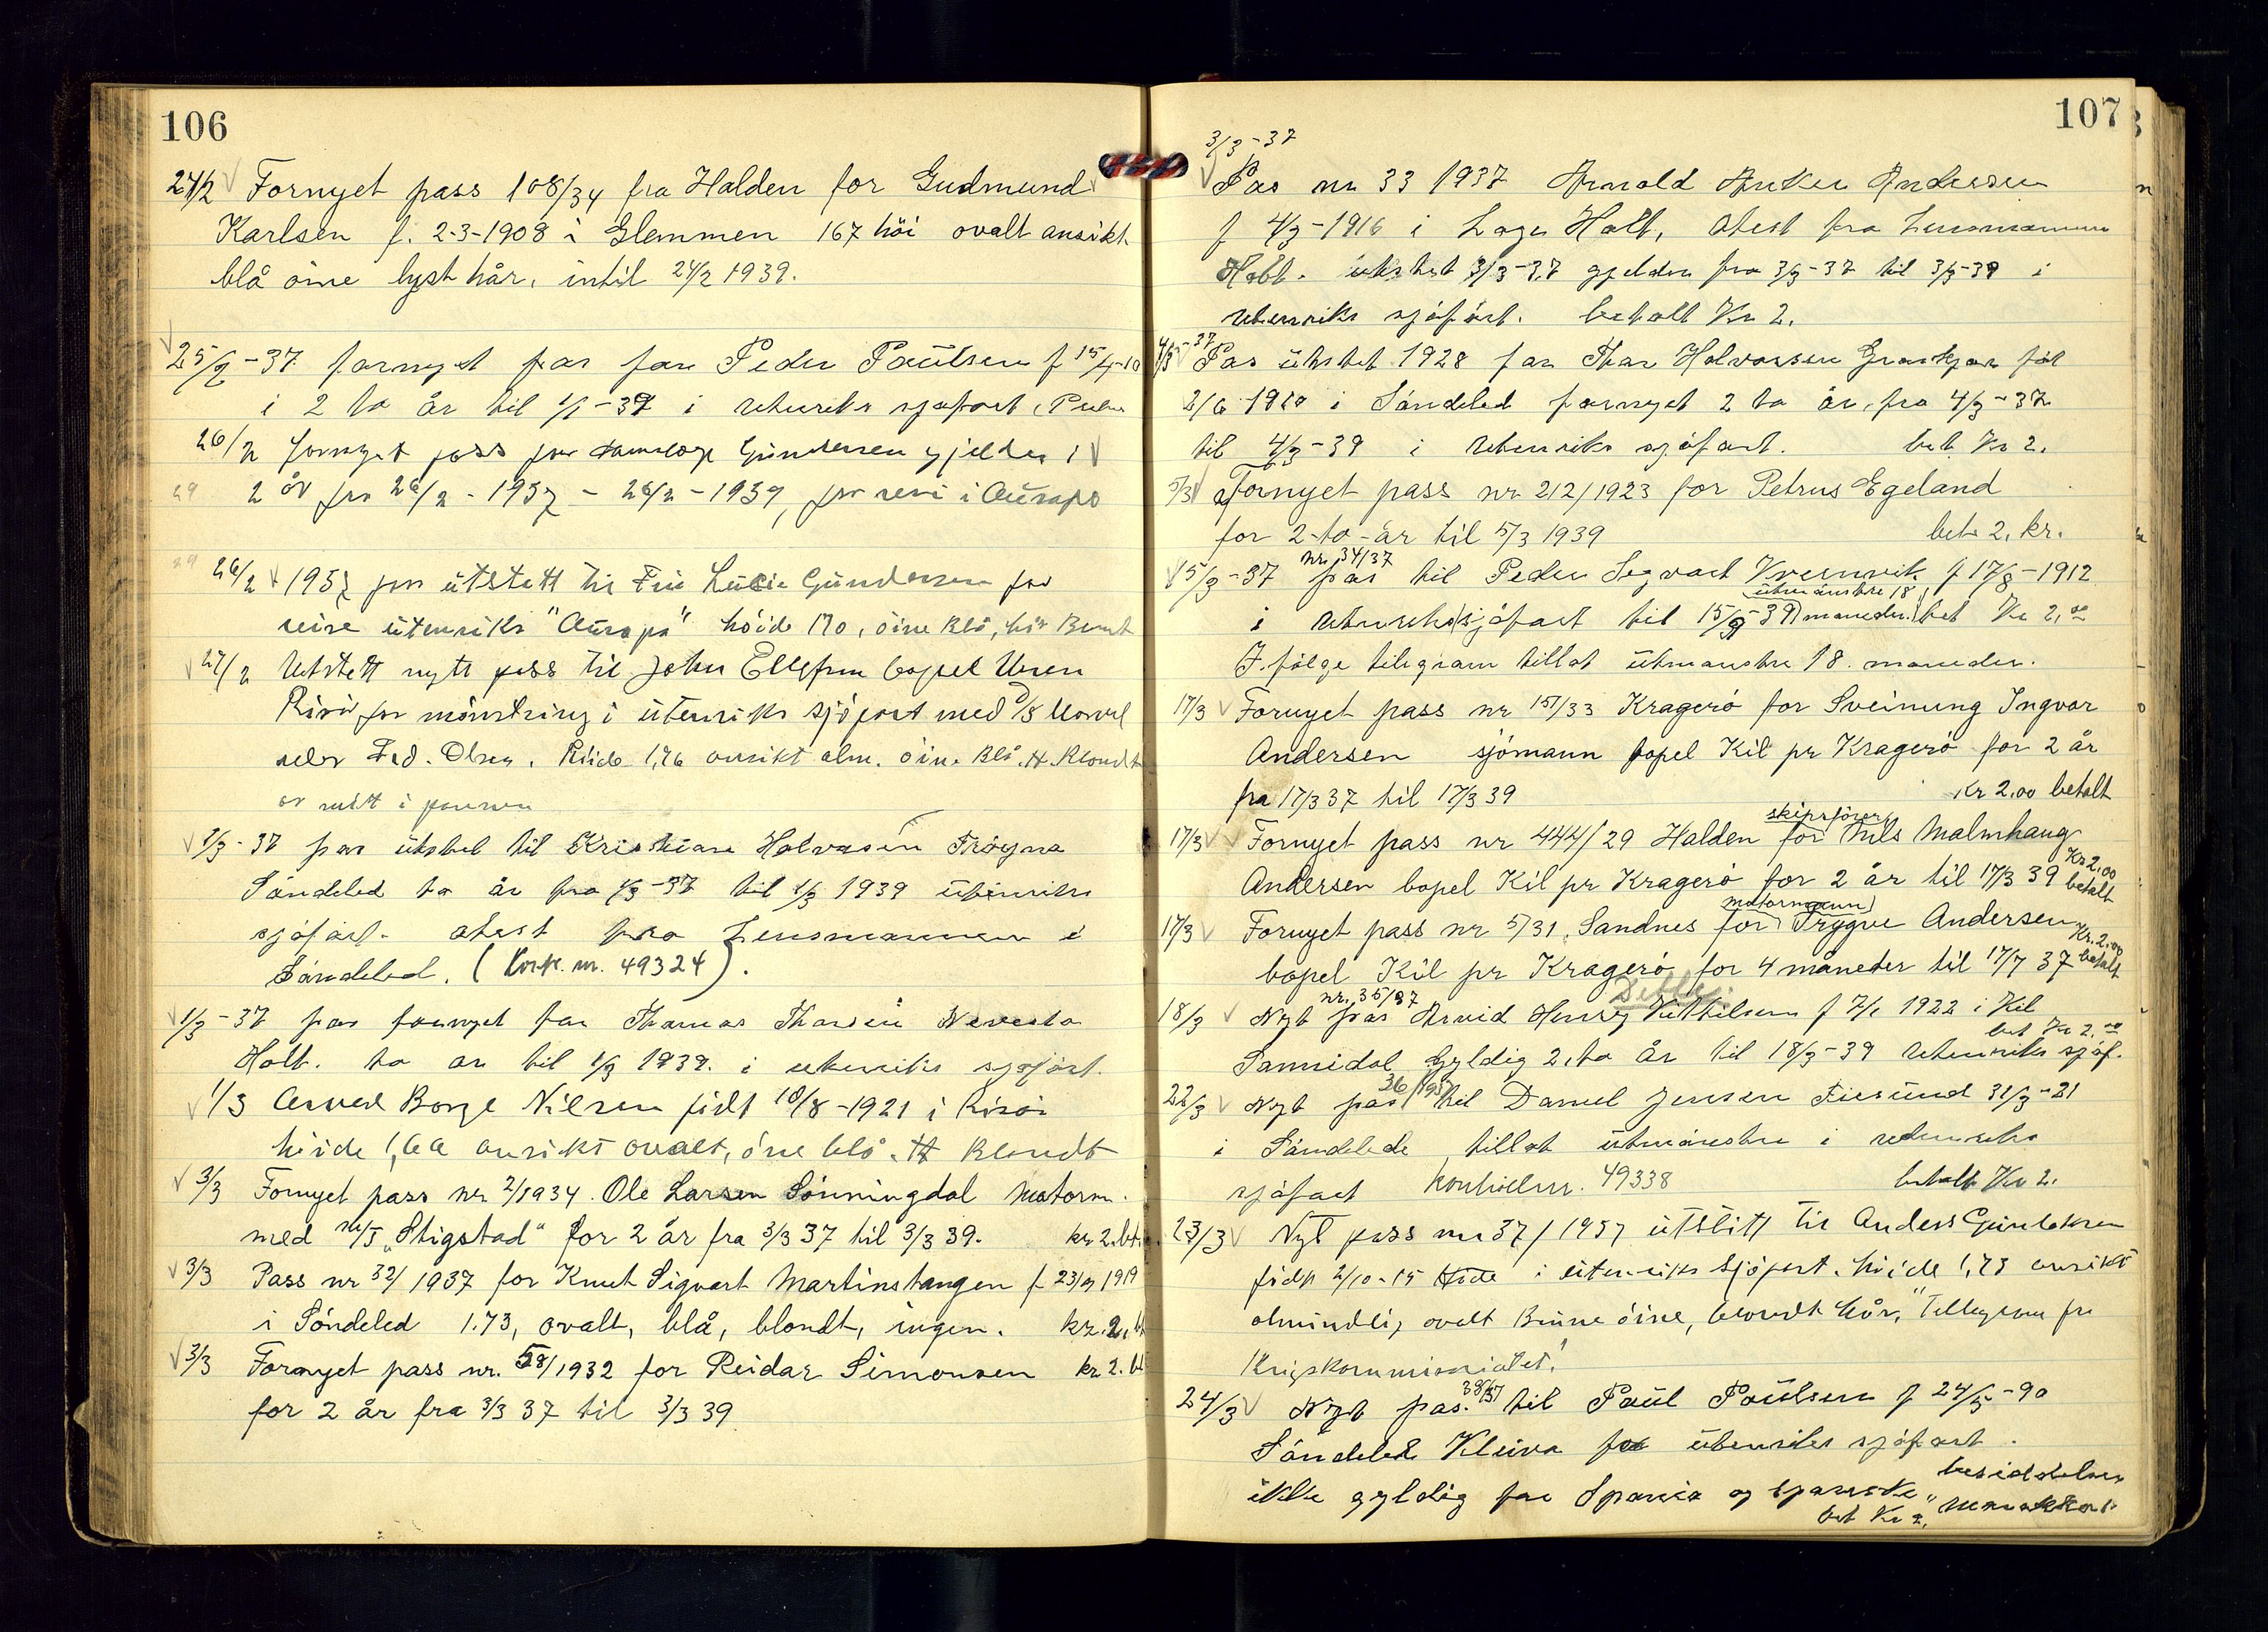 106
24/2 Fornyet pass 108/34 fra Halden for Gudmund
Karlsen f. 2-3-1908 i Glemmen 167 höi ovalt ansikt
blå öine lyst hår, intil 24/2 1939.
25/2-37 fornyet pas for Peder Paulsen f 15/4-10
i 2 to år til 1/1-39 i utenriks sjøfart
26/2 fornyet pass for Gundersen gjelder i
29 2 år fra 26/2-1937 - 26/2-1939, for reise i Europa
29 26/2 1937 pas utstett til Fru Lucie Gundersen for
reise utenriks "Europa" höide 170, öine Blå, hår Brunt
27/2 Utstett nytt pass til John Ellefsen bopel Uren
Risör for mönstring i utenriks sjöfart med
rederi Fred. Olsen. Höide 1,76 ansikt alm. öine Blå. H. Blondt
1/3-37 pas utstet til Kristiane Halvorsen Trögna
Söndeled to år fra 1/3-37 til 1/3 1939 utenriks
sjöfart. atest fra Lensmannen i
Söndeled. (Kork. nr. 49324).
1/3-37 pas fornyet for Thomas Thorsen
Holt. to år til 1/3 1939. i utenriks sjøfart.
1/3 Borge Nilsen födt 18/8-1921 i Risör
höide 1,60 ansikt ovalt, öine blå. H Blondt
3/3 Fornyet pass nr 2/1934. Ole Larsen Sönningdal Motorm.
med m/s "Stigstad" for 2 år fra 3/3 37 til 3/3 39. kr 2. bt.
3/3 Pass nr 32/1937 for Knut Sigvart Martinstangen f 23/9 1919
i Söndeled 1.73, ovalt, blå, blondt, ingen. kr. 2. bt
3/3 Fornyet pass nr. 58/1932 for Reidar Simonsen kr 2. bt
for 2 år fra 3/3 37 til 3/3 39
107
3/3-37
Pas nr 33 1937 Arnold Anker Andersen
f 4/3-1916 i Holt, atest fra Lensmannen
Holt. utstet 3/3-37 gjelder fra 3/3-37 til 3/3-39 i
utenriks sjöfart. betalt Kr 2.
4/3-37 Pas utstet 1928 for Thor Halvorsen föt
2/6 1910 i Söndeled fornyet 2 to år, fra 4/3-37
til 4/3-39 i utenriks sjöfart. bet Kr 2.
5/3 Fornyet pass nr 212/1923 for Petrus Egeland
for 2-to-år til 5/3 1939 bet 2. kr.
15/3-37 nr. 34/37 pas til Peder Segvart f 17/8-1912
utmönstre 18
i utenriks (sjöfart til 15/9-39) maneder. bet Kr 2.
I. fölge telegram tillat utmönstre 18. maneder.
17/3 Fornyet pass nr 151/33 Kragerö for Sveinung Ingvar
Andersen sjömann bopel Kil pr Kragerö for 2 år
fra 17/3 37 til 17/3 39 Kr 2.00 betalt
skipsförer
17/3 Fornyet pass nr 444/29 Halden for Nils Malmhaug
Andersen bopel Kil pr Kragerö for 2 år til 17/3 39 Kr 2.00 betalt
motormann
17/3 Fornyet pass nr 5/31, Sandnes for Trygve Andersen
bopel Kil pr Kragerö for 4 måneder til 17/7 37 Kr. 2.00 betalt
18/3 Nyt nr. 35/37 pas Arvid Henry Kittilsen f 7/1 1922 i Kil
bet Kr 2.
Sannidal Gyldig 2. to År til 18/3-39 Utenriks sjöf.
22/3 Nyt pas 36/1937 til Daniel Jensen 31/3-21
i Söndelede tillat utmönstre i utenriks
sjöfart Kontrollnr. 49338 betalt Kr 2.
23/3 Nyt pass nr 37/1937 utstitt til Anders Gundersen
födt 2/10-15 i utenriks sjöfart. höide 1,73 ansikt
almindli, ovalt Brune öine, blondt hår, "Tellegram fra
Krigskommisariatet."
24/3 Nyt pas. 38/37 til Paul Paulsen f 24/5-90
Söndeled Kleiva for utenriks sjöfart.
ikke gyldig for Spania og spanske besiddelser
bet Kr 2, "marokko"